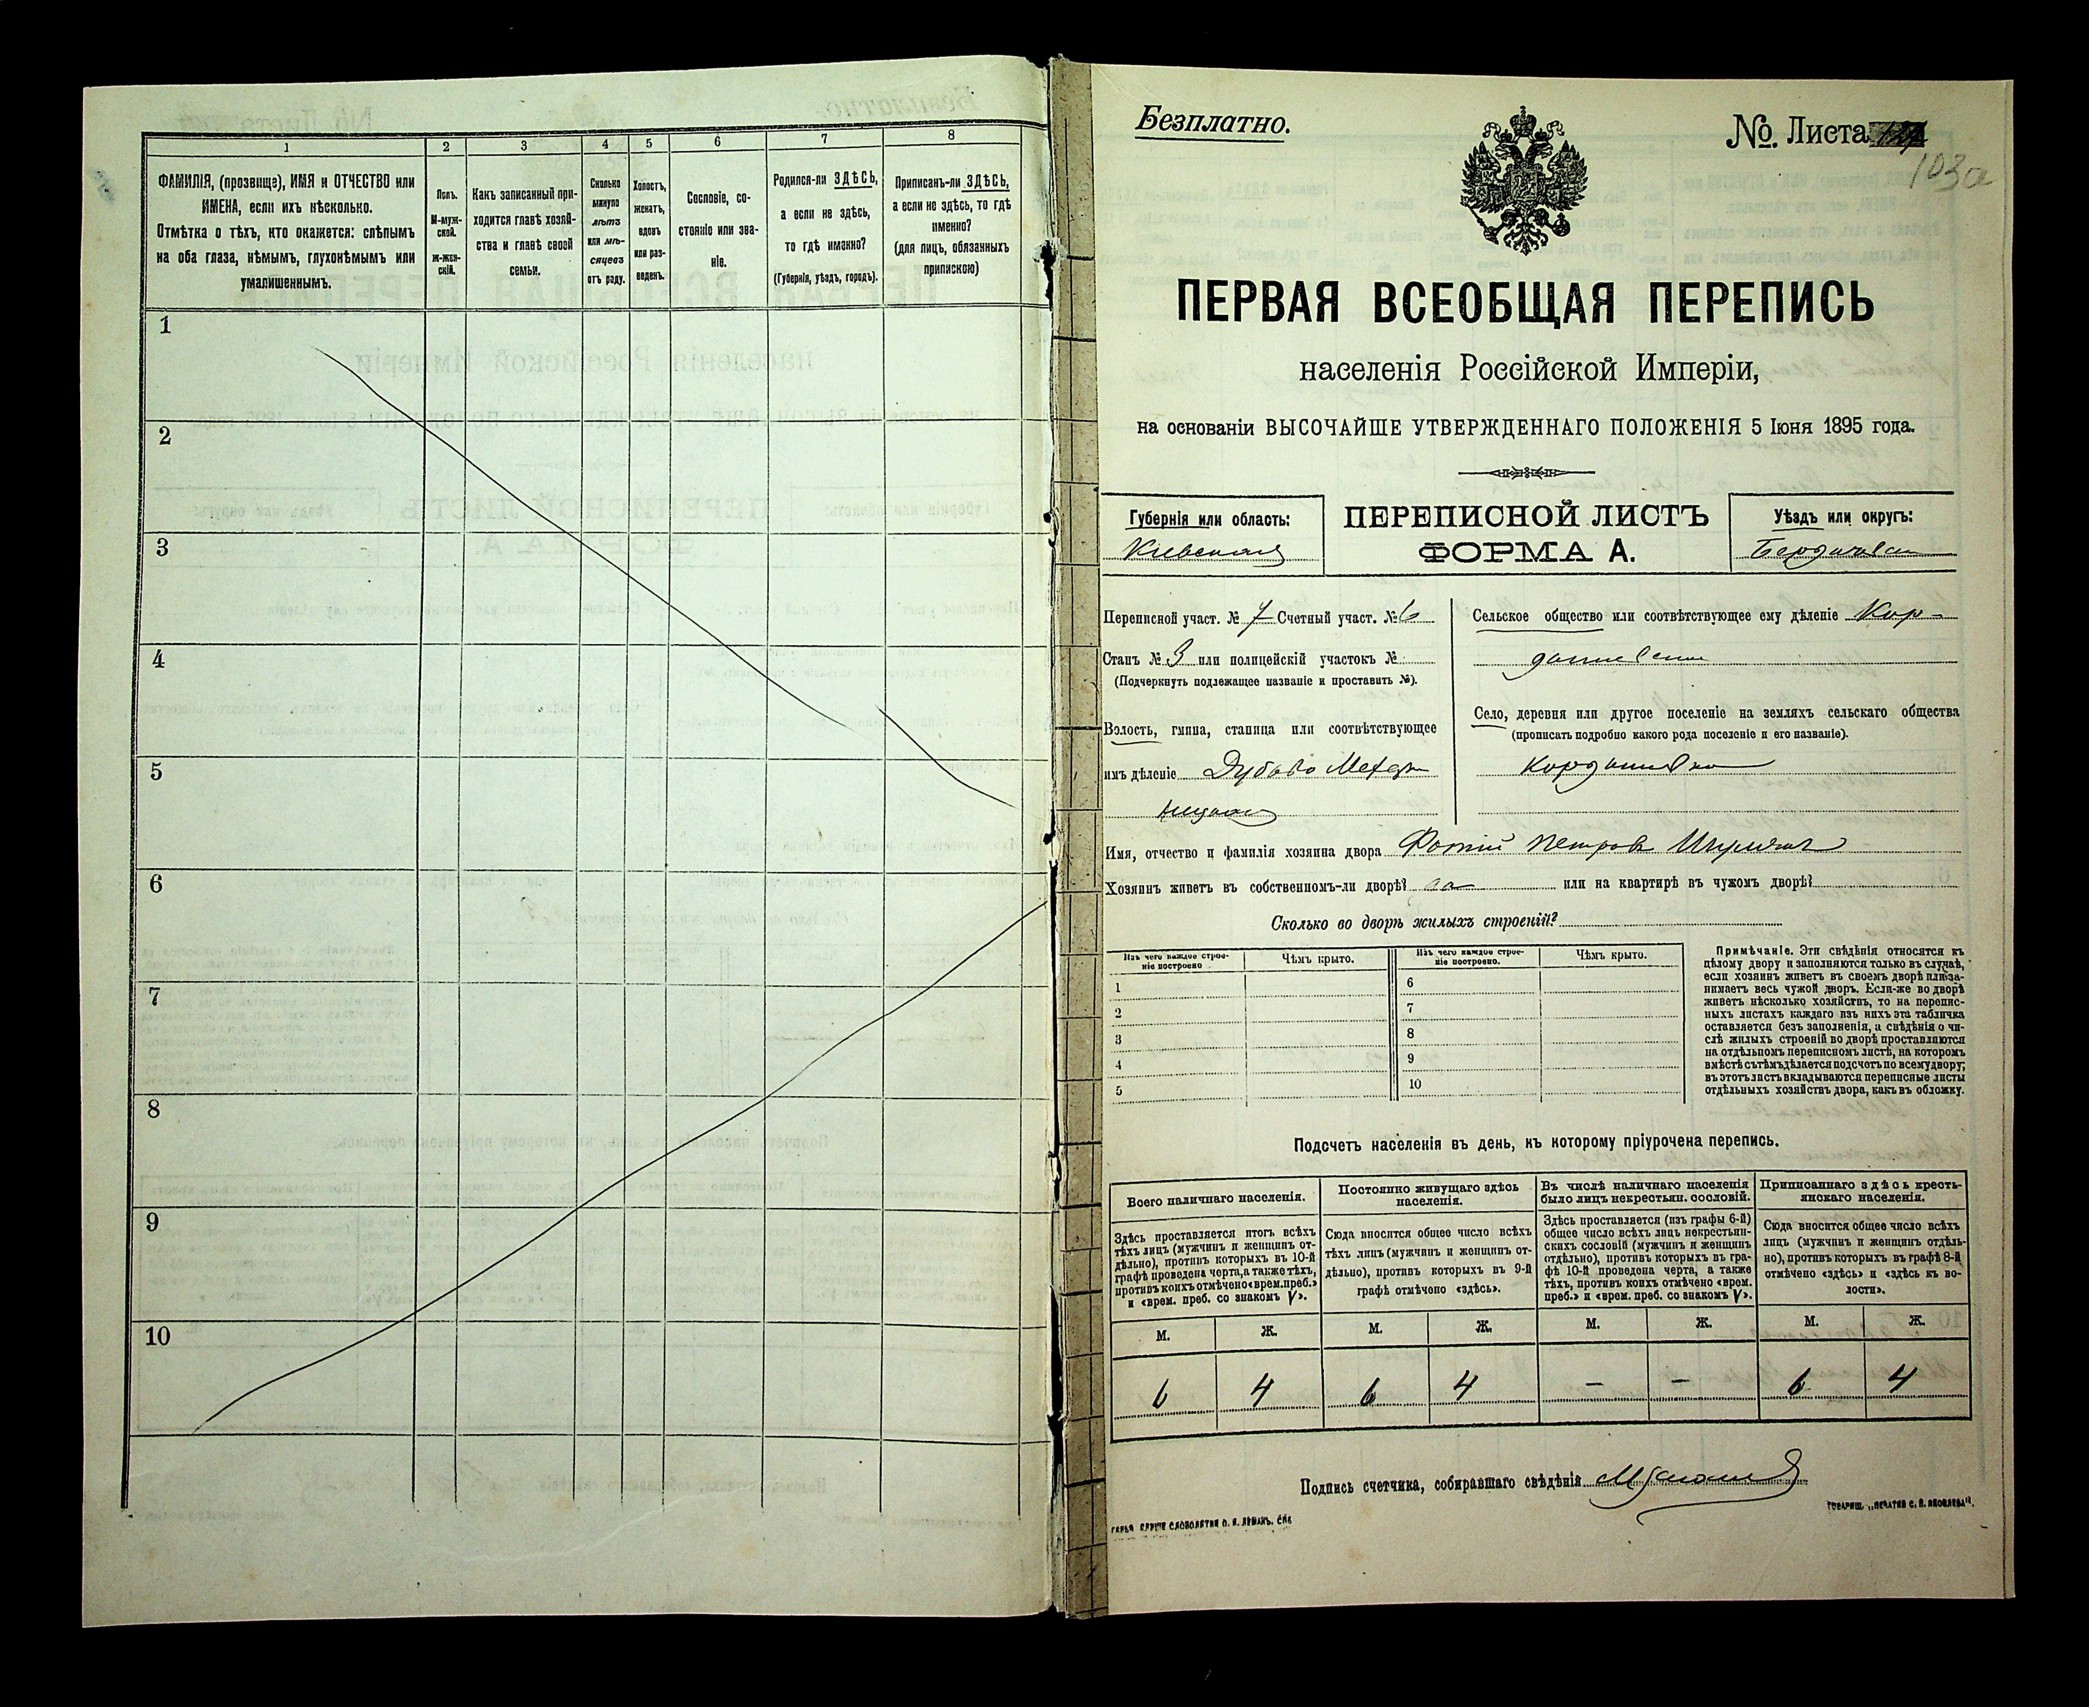 1
2
3
4
5
6
7
8
ФАМИЛІЯ, (прозвище), ИМЯ и ОТЧЕСТВО или
ИМЕНА, если ихъ нѣсколько.
Отмѣтка о тѣхъ, кто окажется: слѣпымъ
на оба глаза, нѣмымъ, глухонѣмымъ или
умалишеннымъ.
Полъ.
М-муж-
ской.
Ж-жен-
скій.
Какъ записанный при-
ходится главѣ хозяй-
ства и главѣ своей
семьи.
Сколько
минуло
лѣтъ
или мѣ-
сяцевъ
отъ роду.
Холостъ,
женатъ,
вдовъ
или раз-
веденъ.
Сословіе, со-
стояніе или зва-
ніе.
Родился-ли ЗДѢСЬ,
а если не здѣсь,
то гдѣ именно?
(Губернія, уѣздъ, городъ).
Приписанъ-ли ЗДѢСЬ,
а если не здѣсь, то гдѣ
именно?
(для лицъ, обязанныхъ
припискою)
1
2
3
4
5
6
7
8
9
10
Безплатно.
№. Листа
103а
ПЕРВАЯ ВСЕОБЩАЯ ПЕРЕПИСЬ
населенія Россійской Имперіи,
на основаніи ВЫСОЧАЙШЕ УТВЕРЖДЕННАГО ПОЛОЖЕНІЯ 5 Іюня 1895 года.
Губернія или область:
Кіевская
ПЕРЕПИСНОЙ ЛИСТЪ
ФОРМА А.
Уѣздъ или округъ:
Переписной участ. № 7 Счетный участ. № 6
Станъ № 3 или полицейскій участокъ №
(Подчеркнуть подлежащее названіе и проставить №).
Волость, гмина, станица или соотвѣтствующее
имъ дѣленіе
Сельское общество или соотвѣтствующее ему дѣленіе Кор-
Село, деревня или другое поселеніе на земляхъ сельскаго общества
(прописать подробно какого рода поселеніе и его названіе).
Имя, отчество и фамилія хозяина двора Фотій Петровъ
Хозяинъ живетъ въ собственномъ-ли дворѣ? да или на квартирѣ въ чужомъ дворѣ?
Сколько во дворѣ жилыхъ строеній?
Изъ чего каждое строе-
ніе построено
Чѣмъ крыто.
Изъ чего каждое строе-
ніе построено.
Чѣмъ крыто.
1
2
3
4
5
6
7
8
9
10
Примѣчаніе. Эти свѣдѣнія относятся къ
цѣлому двору и заполняются только въ случаѣ,
если хозяинъ живетъ въ своемъ дворѣ или за-
нимаетъ весь чужой дворъ. Если-же во дворѣ
живетъ нѣсколько хозяйствъ, то на перепис-
ныхъ листахъ каждаго изъ нихъ эта табличка
оставляется безъ заполненія, а свѣдѣнія о чи-
слѣ жилыхъ строеній во дворѣ проставляются
на отдѣльномъ переписномъ листѣ, на которомъ
вмѣстѣ съ тѣмъ дѣлается подсчетъ по всему двору;
въ этотъ листъ вкладываются переписные листы
отдѣльныхъ хозяйствъ двора, какъ въ обложку.
Подсчетъ населенія въ день, къ которому пріурочена перепись.
Всего наличнаго населенія.
Здѣсь проставляется итогъ всѣхъ
тѣхъ лицъ (мужчинъ и женщинъ от-
дѣльно), противъ которыхъ въ 10-й
графѣ проведена черта, а также тѣхъ,
противъ коихъ отмѣчено «врем. преб.»
и «врем. преб. со знакомъ V».
Постоянно живущаго здѣсь
населенія.
Сюда вносится общее число всѣхъ
тѣхъ лицъ (мужчинъ и женщинъ от-
дѣльно), противъ которыхъ въ 9-й
графѣ отмѣчено «здѣсь».
Въ числѣ наличнаго населенія
было лицъ некрестьян. сословій.
Здѣсь проставляется (изъ графы 6-й)
общее число всѣхъ лицъ некрестьян-
скихъ сословій (мужчинъ и женщинъ
отдѣльно), противъ которыхъ въ гра-
фѣ 10-й проведена черта, а также
тѣхъ, противъ коихъ отмѣчено «врем.
преб.» и «врем. преб. со знакомъ V».
Приписаннаго здѣсь кресть-
янскаго населенія.
Сюда вносится общее число всѣхъ
лицъ (мужчинъ и женщинъ отдѣль-
но), противъ которыхъ въ графѣ 8-й
отмѣчено «здѣсь» и «здѣсь къ во-
лости».
М. Ж. М. Ж. М. Ж. М. Ж.
6 4 6 4 – – 6 4
Подпись счетчика, собиравшаго свѣдѣнія
ТОВАРИЩ. „ПЕЧАТНЯ С. П. ЯКОВЛЕВА".
СЛОВОЛИТНИ О. И. ЛЕМАНЪ. СПБ